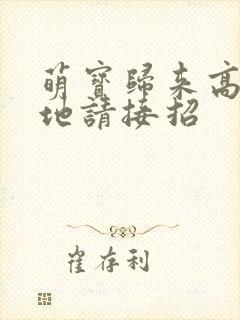 萌寶歸来高
地請接招
崔存利